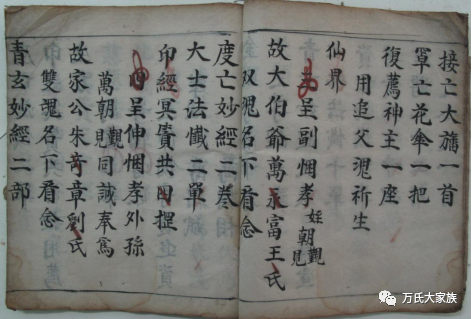 接亡大旛一首
罩亡花傘一把
復薦神主一座
用追父䰟祈生
仙界
呈副悃孝姪朝觀見
故大伯爺萬永富王氏
双䰟名下看念
度亡妙經二卷
大士法懺二單
印經冥賫共
呈伸悃孝外孫
萬朝觀見同誠奉爲
故家公朱奇章劉氏
雙䰟名下看念
青玄妙經二部
万氏大家族